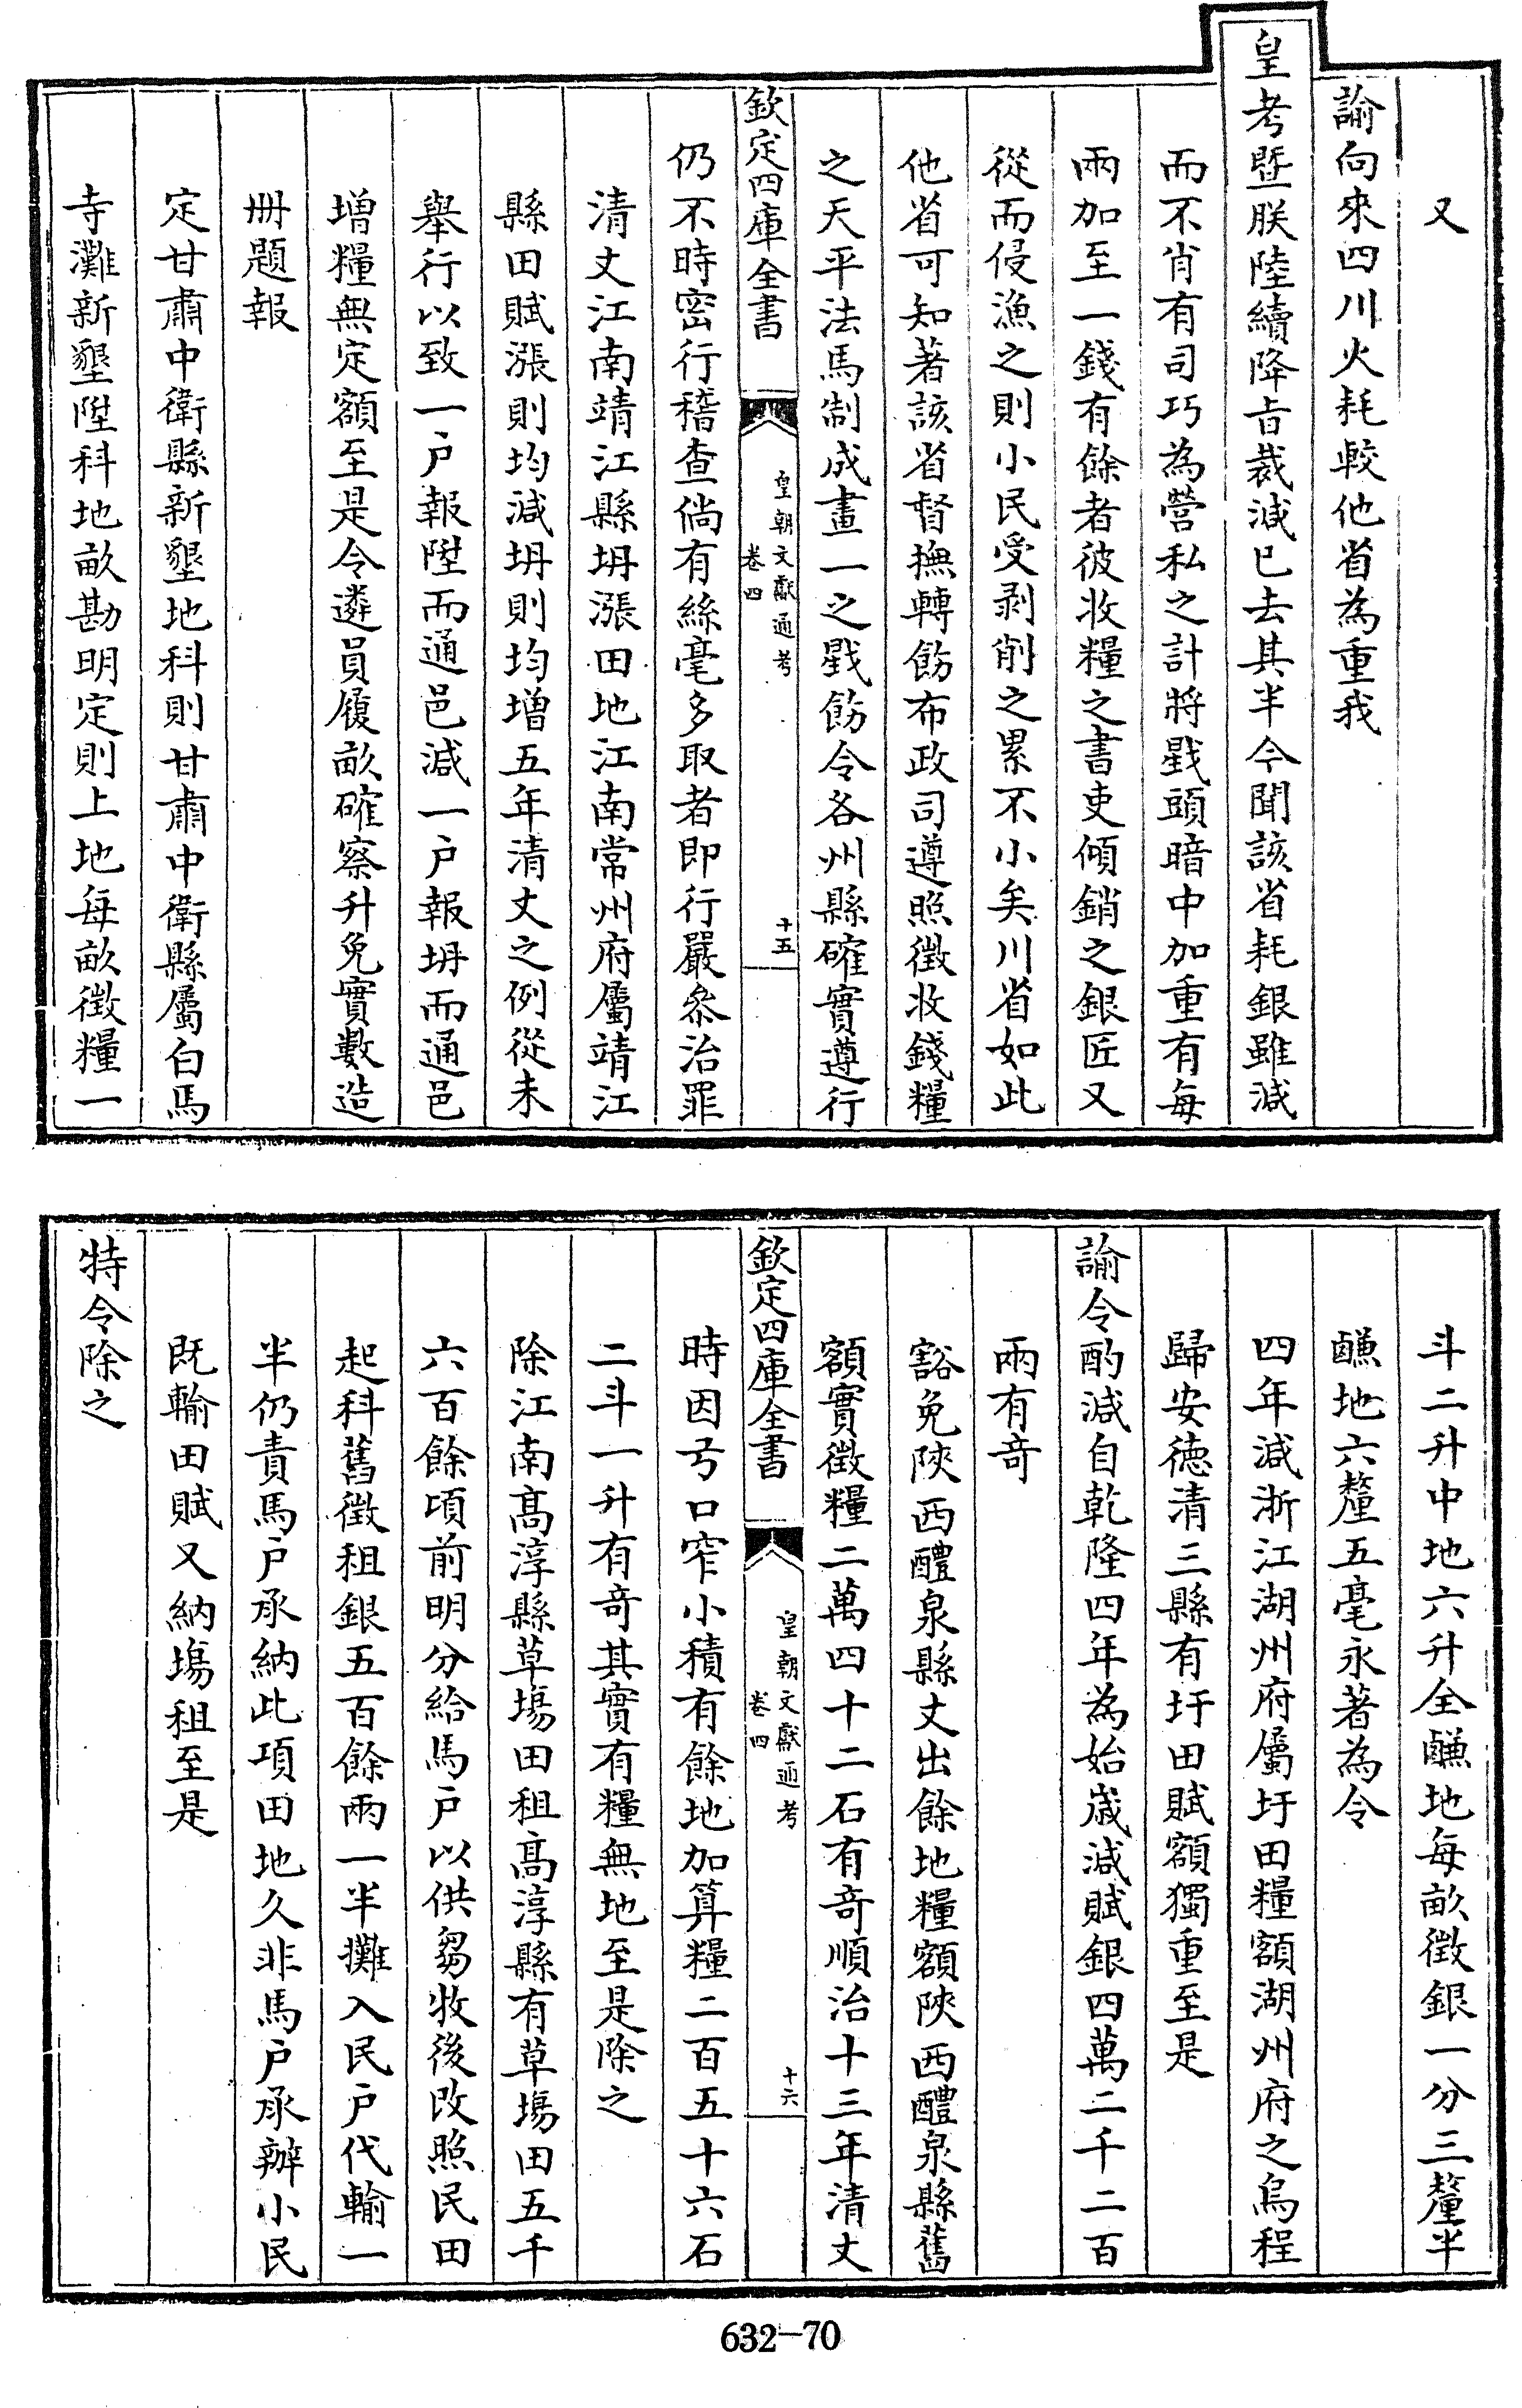 又
諭向來四川火耗較他省為重我
皇考暨朕陸續降㫖裁減已去其半今聞該省耗銀雖減
而不肖有司巧為營私之計將戥頭暗中加重有每
兩加至一錢有餘者彼收糧之書吏傾銷之銀匠又
從而侵漁之則小民受剥削之累不小矣川省如此
他省可知著該省督撫轉飭布政司遵照徵收錢糧
之天平法馬制成畫一之戥飭令各州縣確實遵行
欽定四庫全書
皇朝文獻通考
卷四
十五
仍不時密行稽查倘有絲毫多取者即行嚴叅治罪
清丈江南靖江縣坍漲田地江南常州府屬靖江
縣田賦漲則均減坍則均增五年清丈之例從未
舉行以致一户報陞而通邑減一户報坍而通邑
増糧無定額至是令遴員履畝確察升免實數造
册題報
定甘肅中衛縣新墾地科則甘肅中衛縣屬白馬
寺灘新墾陞科地畝勘明定則上地每畝徵糧一
斗二升中地六升全鹻地每畝徵銀一分三釐半
鹻地六釐五毫永著為令
四年減浙江湖州府屬圩田糧額湖州府之烏程
歸安德清三縣有圩田賦額獨重至是
諭令酌減自乾隆四年為始歳減賦銀四萬二千二百
兩有竒
豁免陜西醴泉縣丈出餘地糧額陜西醴泉縣舊
額實徵糧二萬四十二石有竒順治十三年清丈
欽定四庫全書
皇朝文獻通考
卷四
十六
時因弓口窄小積有餘地加算糧二百五十六石
二斗一升有竒其實有糧無地至是除之
除江南髙淳縣草塲田租髙淳縣有草塲田五千
六百餘頃前明分給馬户以供芻牧後改照民田
起科舊徵租銀五百餘兩一半攤入民户代輸一
半仍責馬户承納此項田地久非馬户承辦小民
既輸田賦又納塲租至是
特令除之
632-70